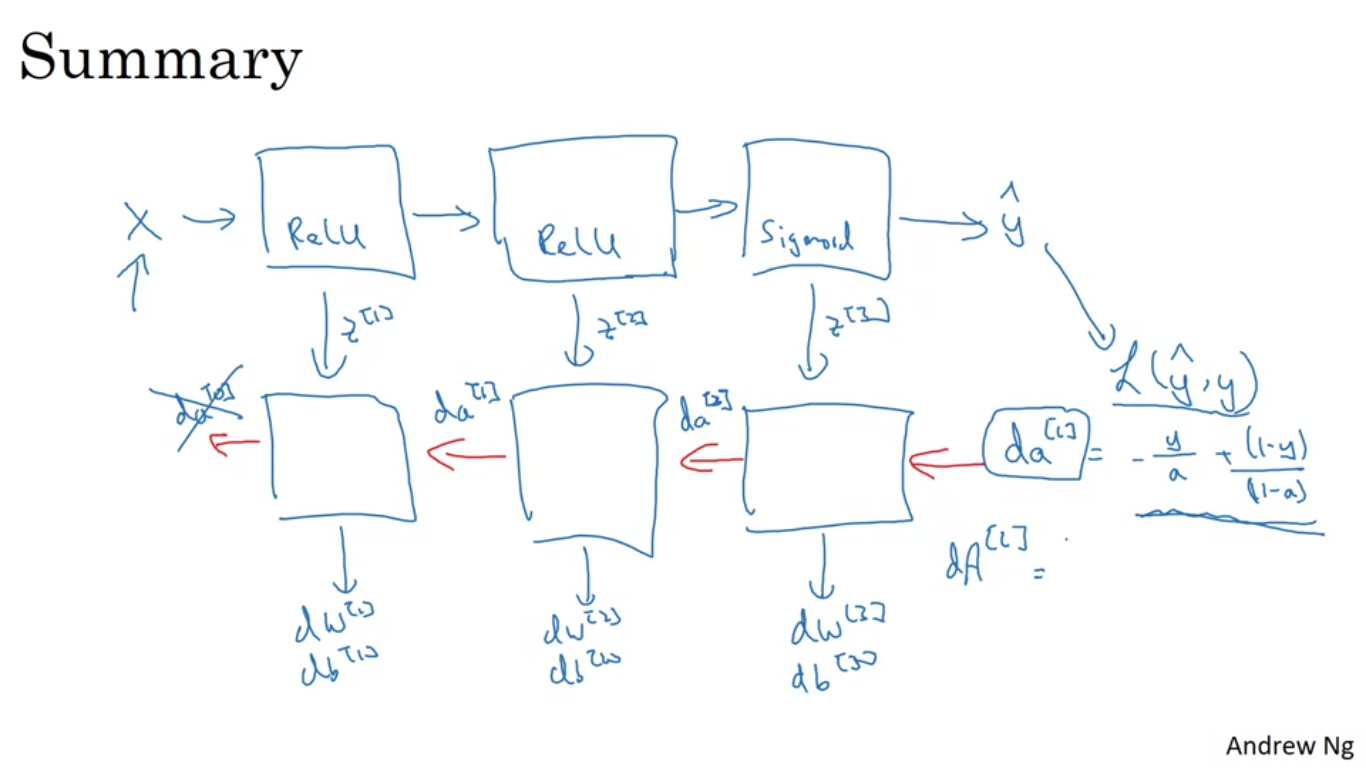 Summary
X → ReLU → ReLU → Sigmoid → ŷ
z^[1] z^[2] z^[3]
L(ŷ, y)
da^[0] da^[1] da^[2] da^[l] = - y/a + (1-y)/(1-a)
dA^[l] =
dw^[1] dw^[2] dw^[3]
db^[1] db^[2] db^[3]
Andrew Ng